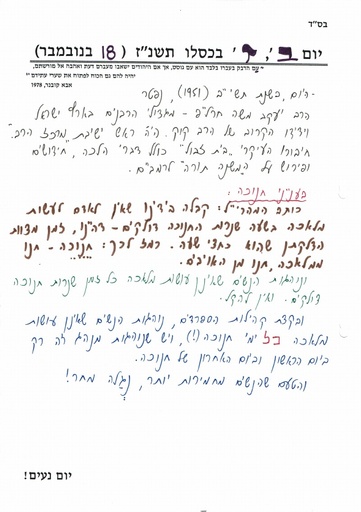 בס"ד
יום ב', ז' בכסלו תשנ"ז (18 בנובמבר)
"עם הדבק בעברו בלבד הוא עם גוסס, אך אם היהודים ישאבו מעברם דעת ואהבה אל מורשתם,
יהיה להם גם הכוח לפתוח את שערי עתידם"
אבא קובנר, 1978
-היום, בשנת תשי"ב (1951), נפטר
הרב יעקב משה חרל"פ - מגדולי הרבנים בארץ ישראל
וידידו הקרוב של הרב קוק. היה ראש ישיבת "מרכז הרב".
חיבורו העיקרי "בית זבול" כולל דברי הלכה, חידושים
ופירוש על "המשנה תורה" לרמב"ם.
בעניני חנוכה:
כותב המהרי"ל: קבלה בידינו שאין לאדם לעשות
מלאכה בשעה שנרות החנוכה דולקים - דהינו, זמן מצוות
הדלקתן שהוא כחצי שעה. רמז לכך: חנוכה - חנו
ממלאכה, חנו מן האויבים.
ונוהגות הנשים שאינן עושות מלאכה כל זמן שנרות חנוכה
דולקים. ואין להקל.
ובקצת קהילות הספרדים, נוהגות הנשים שאינן עושות
מלאכה כל ימי חנוכה(!), ויש שנוהגות מנהג זה רק
ביום הראשון וביום האחרון של חנוכה.
והטעם שהנשים מחמירות יותר, נגלה מחר!
יום נעים!